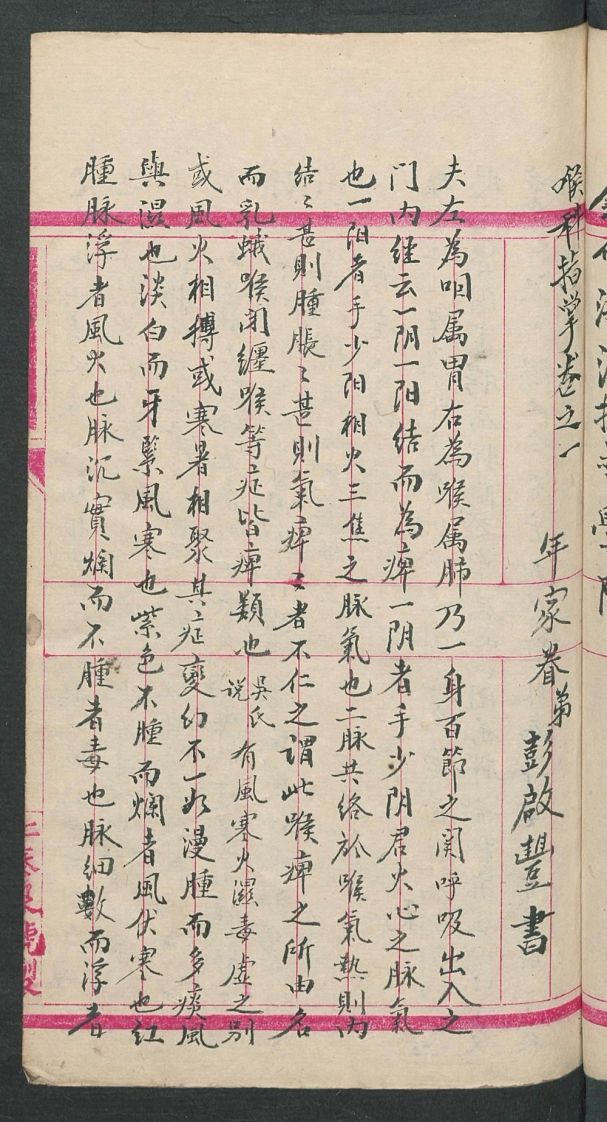 喉科指掌卷之一
年家眷弟彭啟豐書
夫左為咽属胃右為喉属肺乃一身百節之関呼吸出入之
门内經云一阴一阳结而為痺一阴者手少阴君火心之脉氣
也一阳者手少阳相火三焦之脉氣也二脉共络於喉氣熱則内
结〻甚則腫脹〻甚則氣痺〻者不仁之謂此喉痺之所由名
而乳蛾喉闭纏喉等症皆痺類也吳氏说有風寒火濕毒虚之别
或風火相搏或寒暑相聚其症变幻不一如漫腫而多痰風
與濕也淡白而牙緊風寒也紫色不腫而爛者風伏寒也紅
腫脉浮者風火也脉沉實爛而不腫者毒也脉细數而浮者